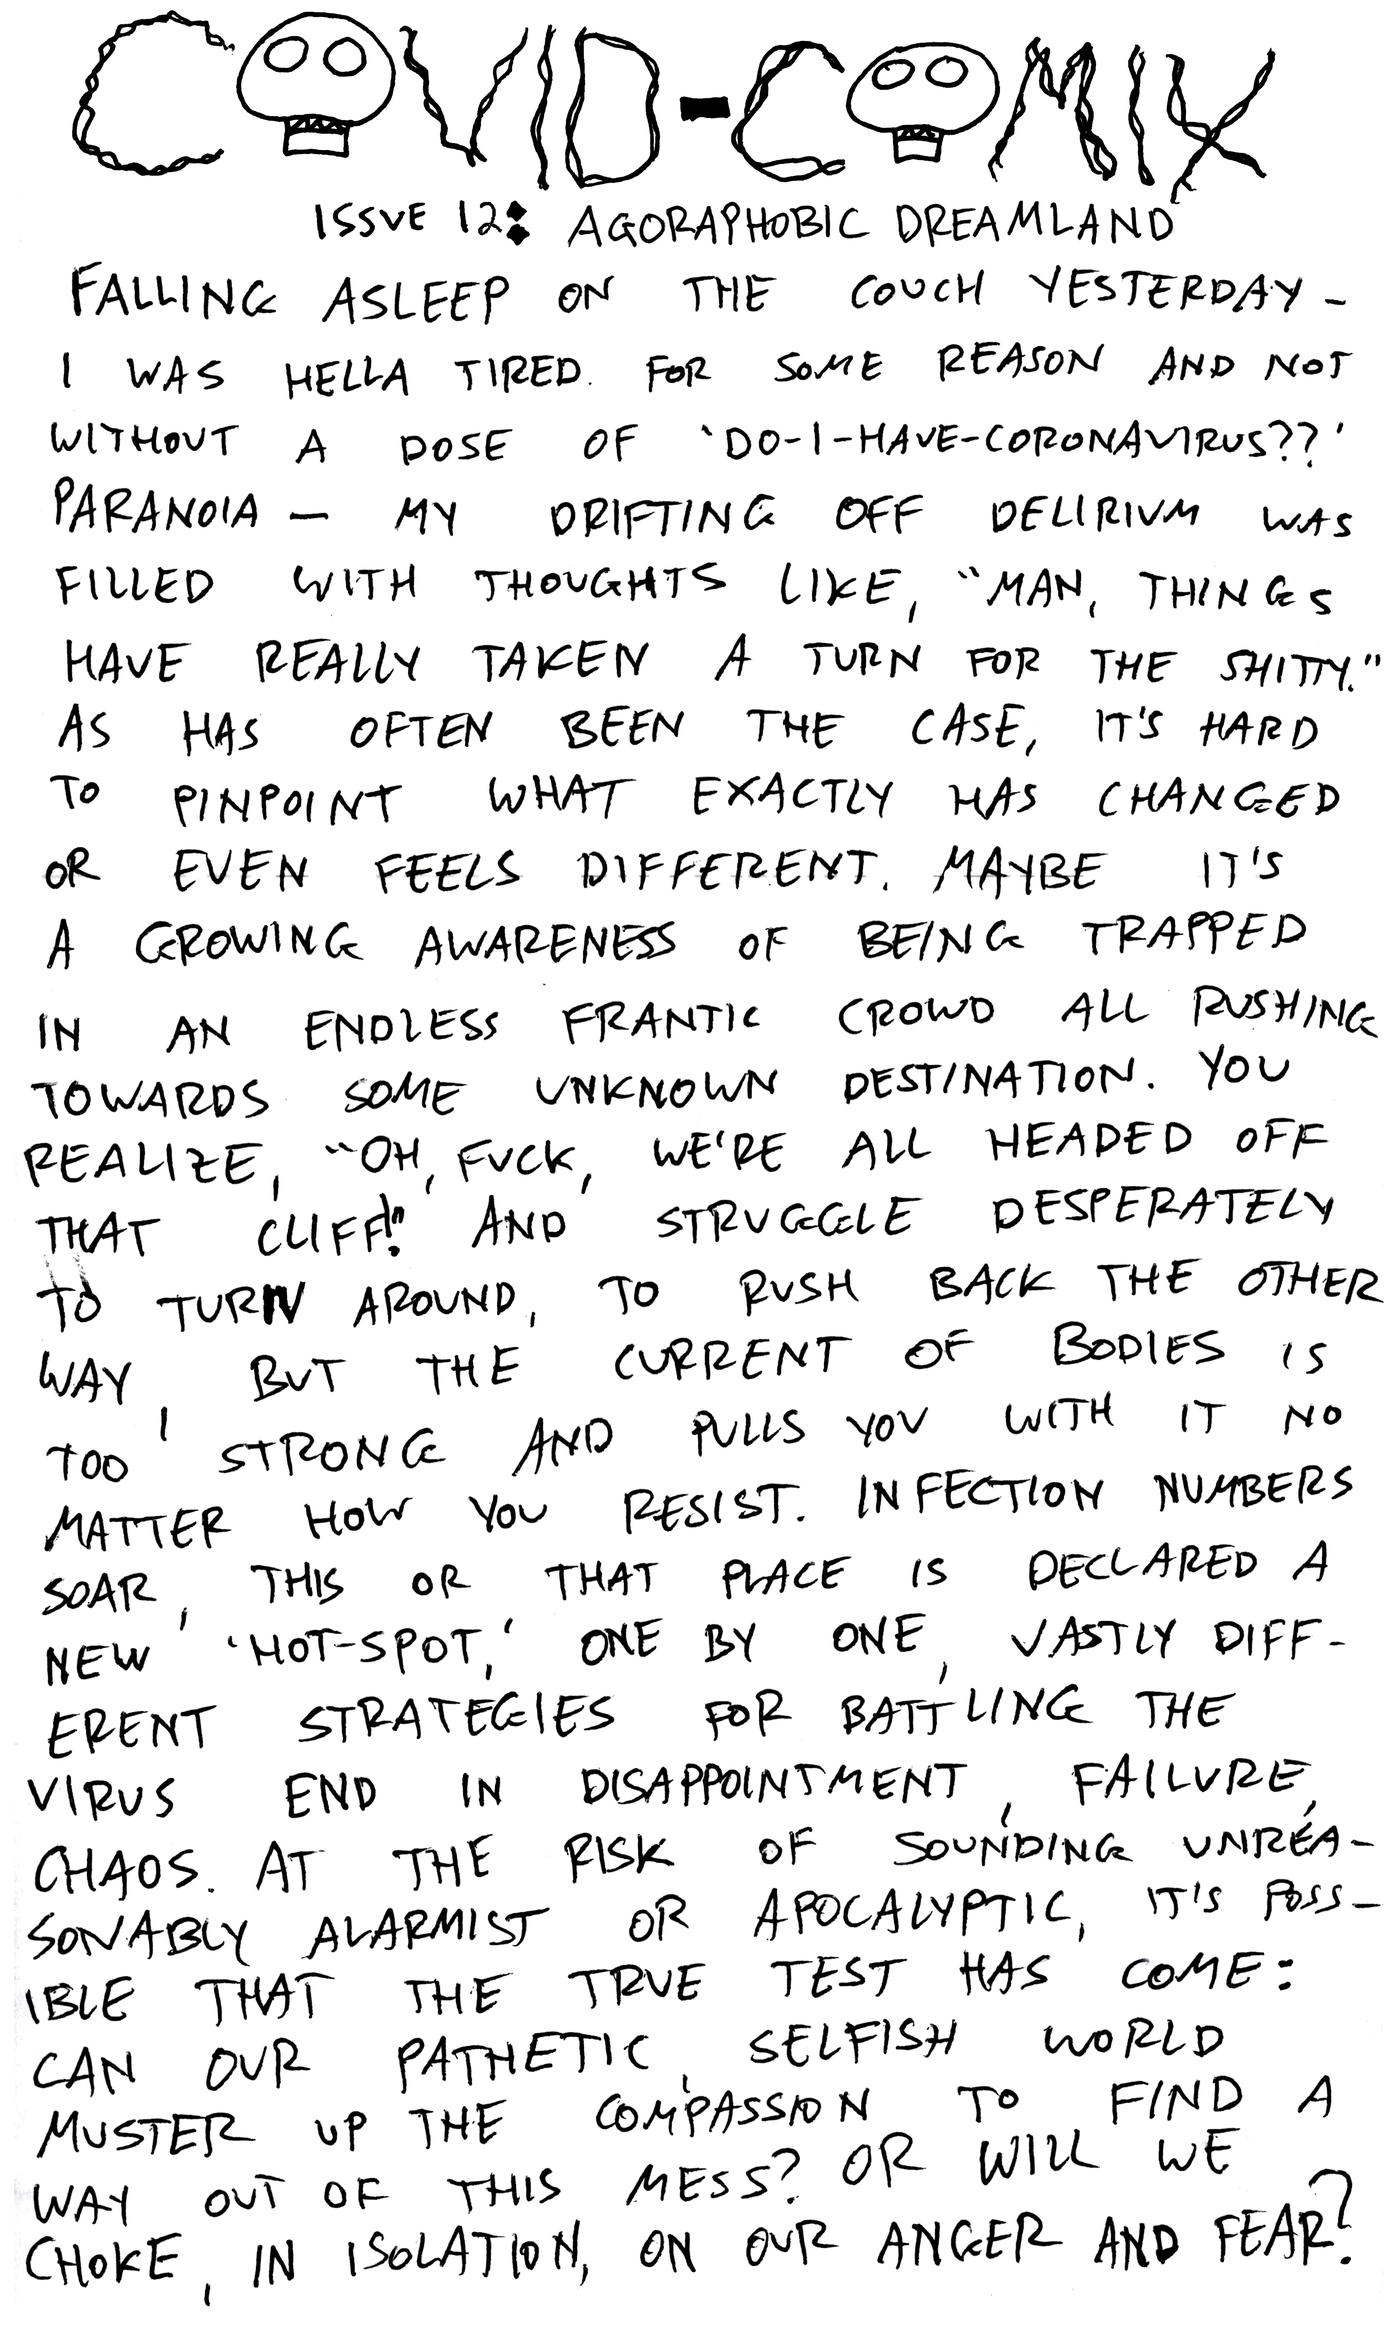 COVID-COMIX
ISSUE 12: AGORAPHOBIC DREAMLAND
FALLING ASLEEP ON THE COUCH YESTERDAY -
I WAS HELLA TIRED. FOR SOME REASON AND NOT
WITHOUT A DOSE OF 'DO-I-HAVE-CORONAVIRUS??'
PARANOIA - MY DRIFTING OFF DELIRIUM WAS
FILLED WITH THOUGHTS LIKE, "MAN, THINGS
HAVE REALLY TAKEN A TURN FOR THE SHITTY."
AS HAS OFTEN BEEN THE CASE, IT'S HARD
TO PINPOINT WHAT EXACTLY HAS CHANGED
OR EVEN FEELS DIFFERENT. MAYBE IT'S
A GROWING AWARENESS OF BEING TRAPPED
IN AN ENDLESS FRANTIC CROWD ALL RUSHING
TOWARDS SOME UNKNOWN DESTINATION. YOU
REALIZE, "OH, FUCK, WE'RE ALL HEADED OFF
THAT CLIFF!" AND STRUGGLE DESPERATELY
TO TURN AROUND, TO RUSH BACK THE OTHER
WAY, BUT THE CURRENT OF BODIES IS
TOO STRONG AND PULLS YOU WITH IT NO
MATTER HOW YOU RESIST. INFECTION NUMBERS
SOAR, THIS OR THAT PLACE IS DECLARED A
NEW 'HOT-SPOT,' ONE BY ONE, VASTLY DIFF-
ERENT STRATEGIES FOR BATTLING THE
VIRUS END IN DISAPPOINTMENT, FAILURE,
CHAOS. AT THE RISK OF SOUNDING UNREA-
SONABLY ALARMIST OR APOCALYPTIC, IT'S POSS-
IBLE THAT THE TRUE TEST HAS COME:
CAN OUR PATHETIC, SELFISH WORLD
MUSTER UP THE COMPASSION TO FIND A
WAY OUT OF THIS MESS? OR WILL WE
CHOKE, IN ISOLATION, ON OUR ANGER AND FEAR?